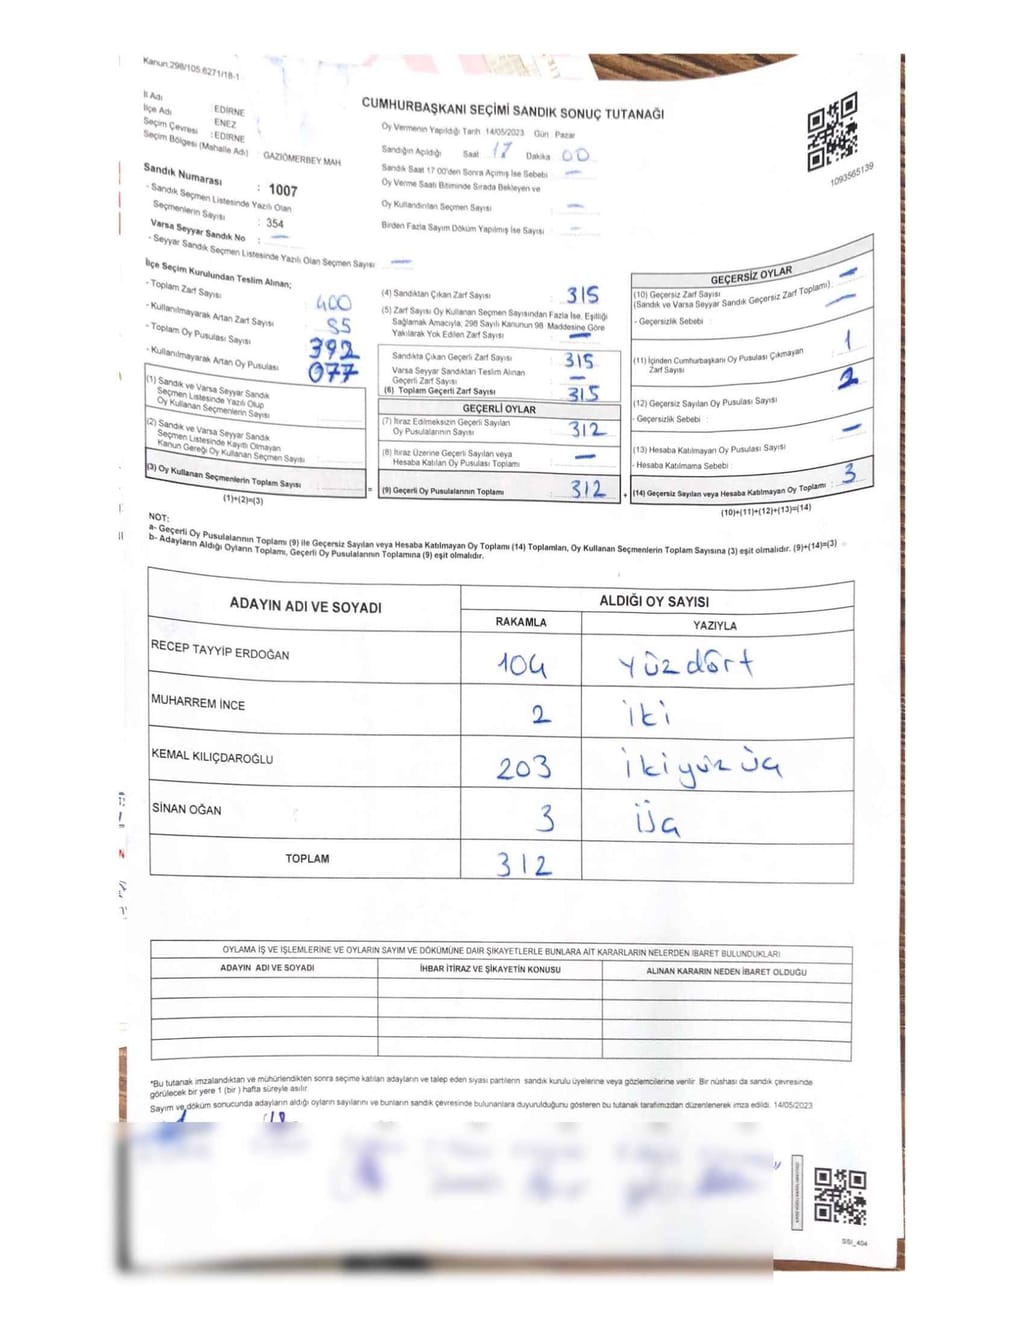 Kanun:298/105.6271/18-1
İl Adı : EDİRNE
İlçe Adı : ENEZ
Seçim Çevresi : EDİRNE
Seçim Bölgesi (Mahalle Adı) : GAZİÖMERBEY MAH
Sandık Numarası : 1007
- Sandık Seçmen Listesinde Yazılı Olan
Seçmenlerin Sayısı : 354
Varsa Seyyar Sandık No : —
- Seyyar Sandık Seçmen Listesinde Yazılı Olan Seçmen Sayısı : —
CUMHURBAŞKANI SEÇİMİ SANDIK SONUÇ TUTANAĞI
Oy Vermenin Yapıldığı Tarih 14/05/2023 Gün Pazar
Sandığın Açıldığı Saat 17 Dakika 00
Sandık Saat 17.00'den Sonra Açılmış İse Sebebi —
Oy Verme Saati Bitiminde Sırada Bekleyen ve
Oy Kullandırılan Seçmen Sayısı —
Birden Fazla Sayım Döküm Yapılmış İse Sayısı —
1093565139
İlçe Seçim Kurulundan Teslim Alınan;
- Toplam Zarf Sayısı : 400
- Kullanılmayarak Artan Zarf Sayısı : 85
- Toplam Oy Pusulası Sayısı : 392
- Kullanılmayarak Artan Oy Pusulası : 077
(1) Sandık ve Varsa Seyyar Sandık
Seçmen Listesinde Yazılı Olup
Oy Kullanan Seçmenlerin Sayısı
(2) Sandık ve Varsa Seyyar Sandık
Seçmen Listesinde Kayıtlı Olmayan
Kanun Gereği Oy Kullanan Seçmen Sayısı
(3) Oy Kullanan Seçmenlerin Toplam Sayısı =
(1)+(2)=(3)
(4) Sandıktan Çıkan Zarf Sayısı : 315
(5) Zarf Sayısı Oy Kullanan Seçmen Sayısından Fazla İse, Eşitliği
Sağlamak Amacıyla, 298 Sayılı Kanunun 98. Maddesine Göre
Yakılarak Yok Edilen Zarf Sayısı : —
Sandıkta Çıkan Geçerli Zarf Sayısı : 315
Varsa Seyyar Sandıktan Teslim Alınan
Geçerli Zarf Sayısı : —
(6) Toplam Geçerli Zarf Sayısı : 315
GEÇERLİ OYLAR
(7) İtiraz Edilmeksizin Geçerli Sayılan
Oy Pusulalarının Sayısı : 312
(8) İtiraz Üzerine Geçerli Sayılan veya
Hesaba Katılan Oy Pusulası Toplamı : —
(9) Geçerli Oy Pusulalarının Toplamı : 312 +
GEÇERSİZ OYLAR
(10) Geçersiz Zarf Sayısı : —
(Sandık ve Varsa Seyyar Sandık Geçersiz Zarf Toplamı) : —
- Geçersizlik Sebebi :
(11) İçinden Cumhurbaşkanı Oy Pusulası Çıkmayan
Zarf Sayısı : 1
(12) Geçersiz Sayılan Oy Pusulası Sayısı : 2
- Geçersizlik Sebebi :
(13) Hesaba Katılmayan Oy Pusulası Sayısı : —
- Hesaba Katılmama Sebebi :
(14) Geçersiz Sayılan veya Hesaba Katılmayan Oy Toplamı : 3
(10)+(11)+(12)+(13)=(14)
NOT:
a- Geçerli Oy Pusulalarının Toplamı (9) ile Geçersiz Sayılan veya Hesaba Katılmayan Oy Toplamı (14) Toplamları, Oy Kullanan Seçmenlerin Toplam Sayısına (3) eşit olmalıdır. (9)+(14)=(3)
b- Adayların Aldığı Oyların Toplamı, Geçerli Oy Pusulalarının Toplamına (9) eşit olmalıdır.
ADAYIN ADI VE SOYADI
ALDIĞI OY SAYISI
RAKAMLA YAZIYLA
RECEP TAYYİP ERDOĞAN 104 yüzdört
MUHARREM İNCE 2 iki
KEMAL KILIÇDAROĞLU 203 ikiyüzüç
SİNAN OĞAN 3 üç
TOPLAM 312
OYLAMA İŞ VE İŞLEMLERİNE VE OYLARIN SAYIM VE DÖKÜMÜNE DAİR ŞİKAYETLERLE BUNLARA AİT KARARLARIN NELERDEN İBARET BULUNDUKLARI
ADAYIN ADI VE SOYADI İHBAR İTİRAZ VE ŞİKAYETİN KONUSU ALINAN KARARIN NEDEN İBARET OLDUĞU
*Bu tutanak imzalandıktan ve mühürlendikten sonra seçime katılan adayların ve talep eden siyasi partilerin sandık kurulu üyelerine veya gözlemcilerine verilir. Bir nüshası da sandık çevresinde
görülecek bir yere 1 (bir ) hafta süreyle asılır.
Sayım ve döküm sonucunda adayların aldığı oyların sayılarını ve bunların sandık çevresinde bulunanlara duyurulduğunu gösteren bu tutanak tarafımızdan düzenlenerek imza edildi. 14/05/2023
SSI_404